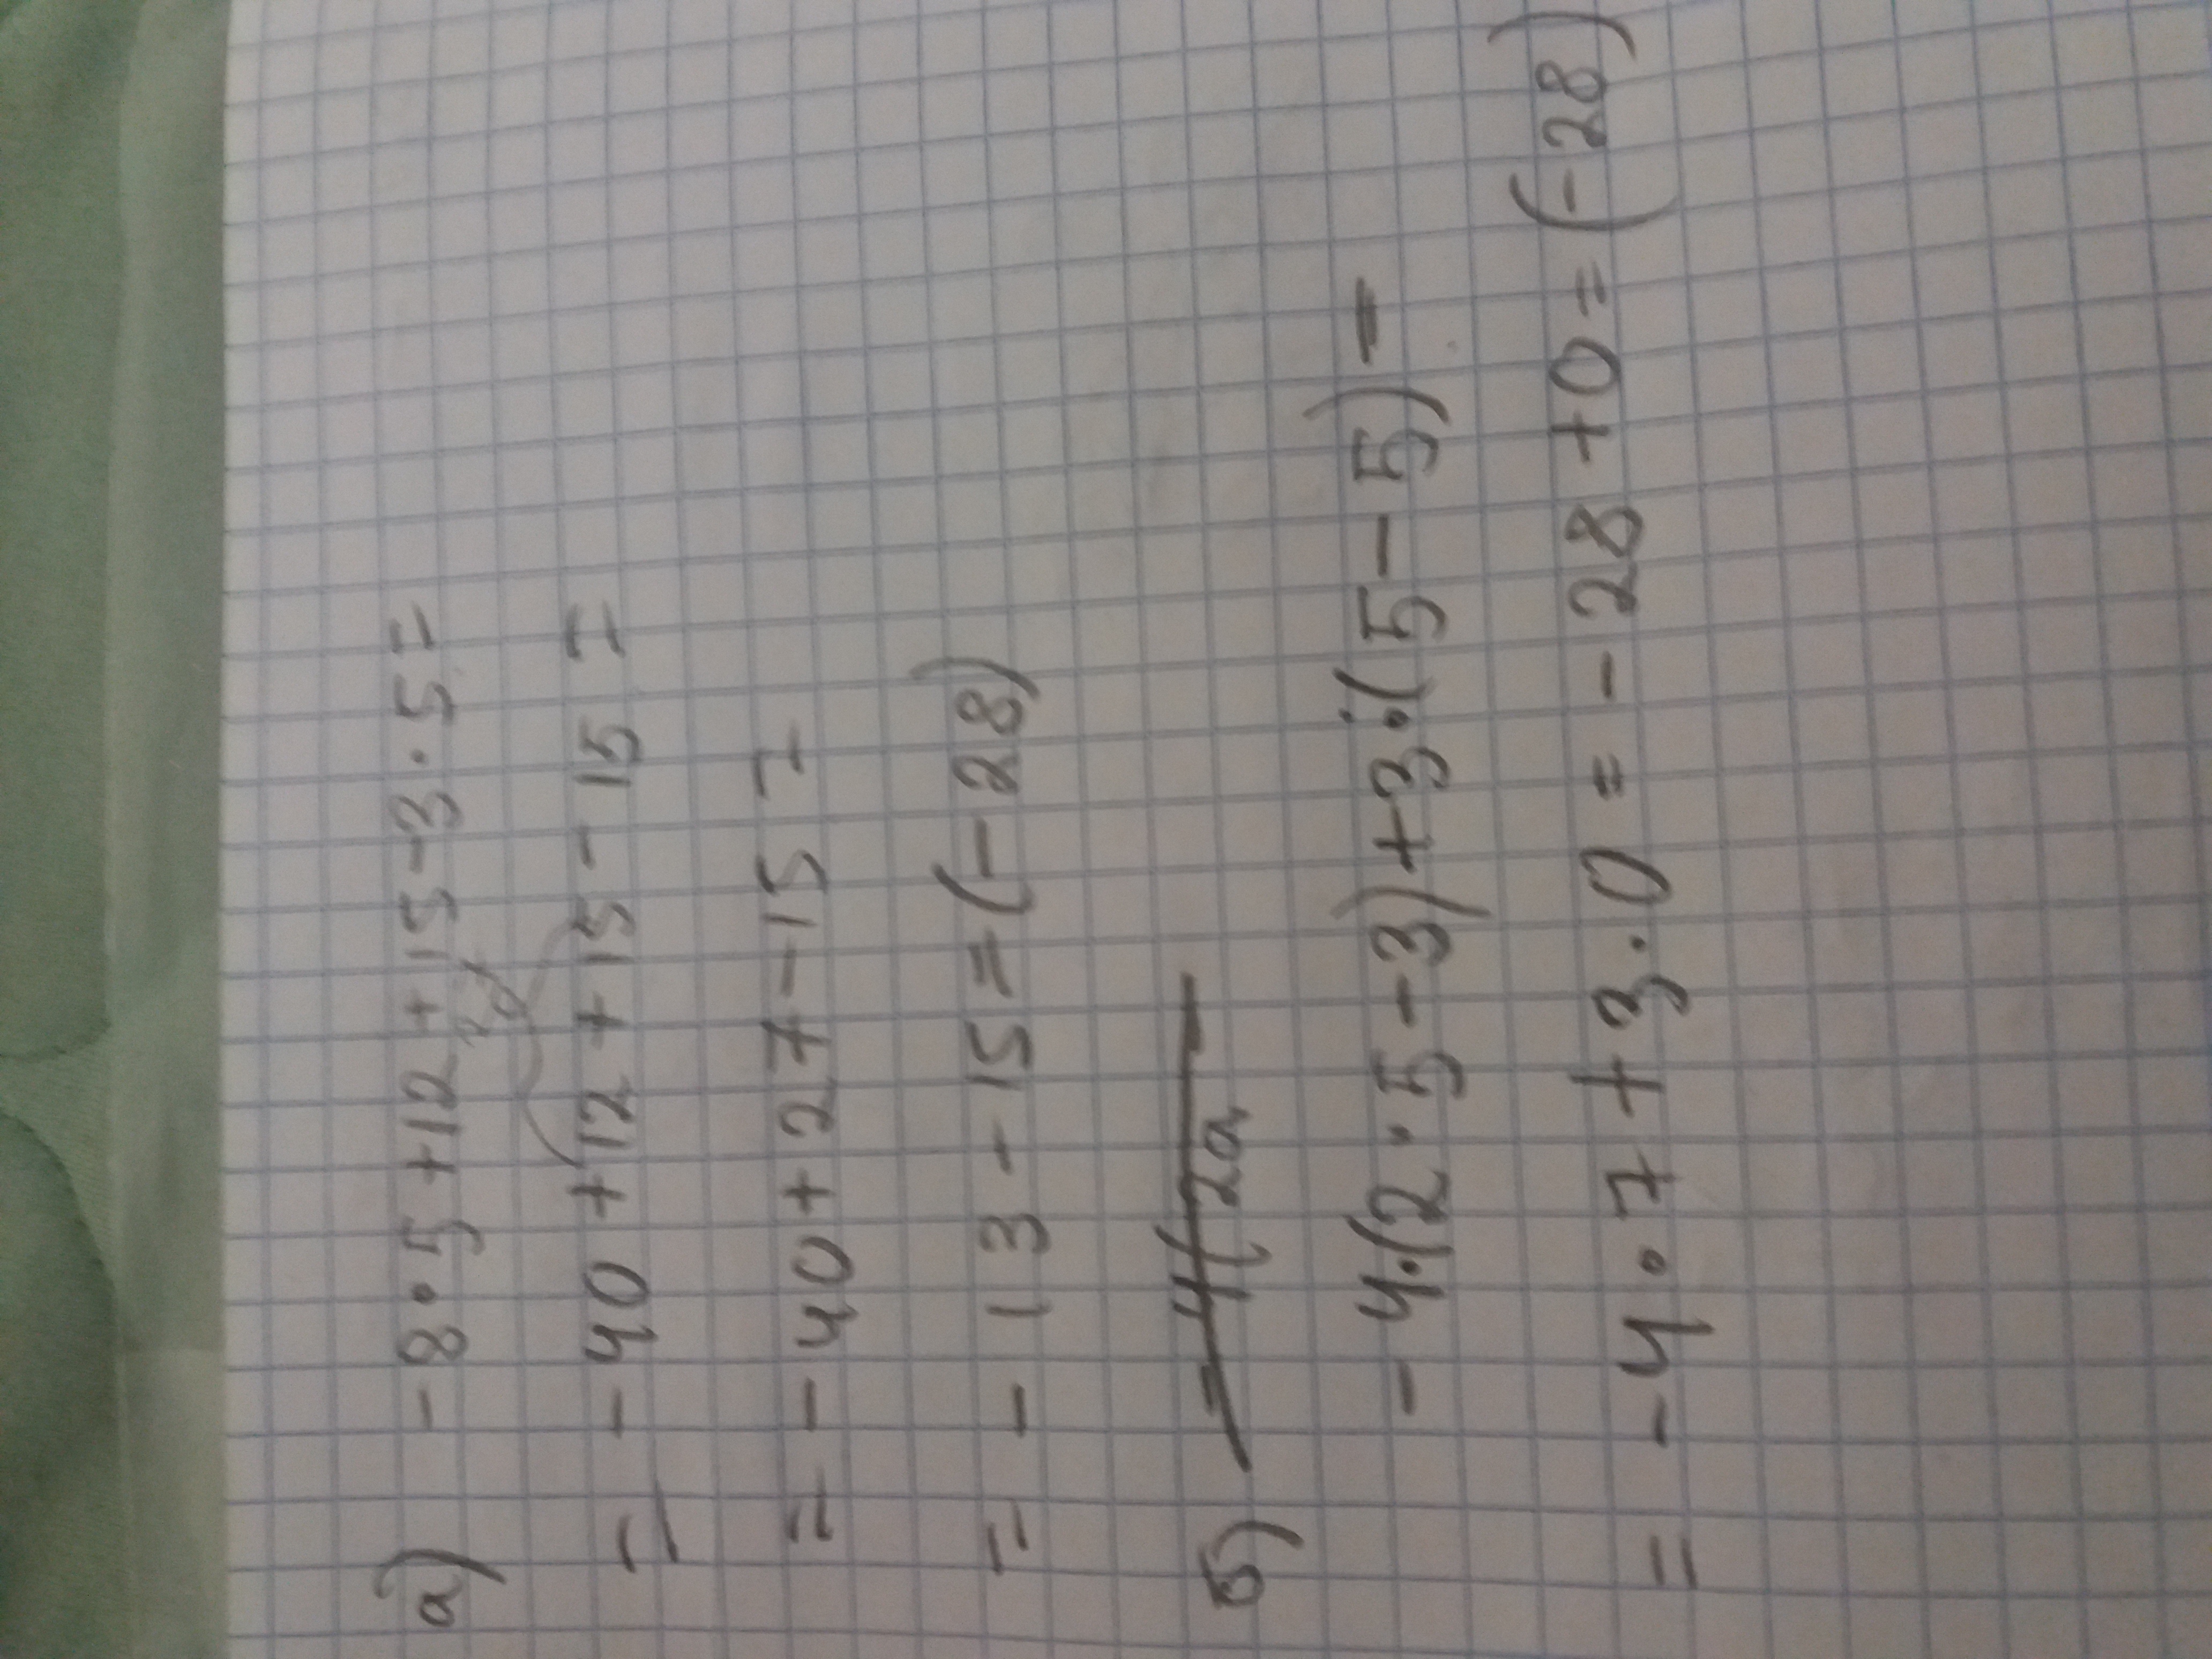 а) - 8 · 5 + 12 + 15 - 3 · 5 =
= - 40 + 12 + 15 - 15 =
= - 40 + 27 - 15 =
= - 13 - 15 = (- 28)
б) - 4(2a
- 4·(2 · 5 - 3) + 3·(5 - 5) =
= - 4 · 7 + 3 · 0 = - 28 + 0 = (- 28)